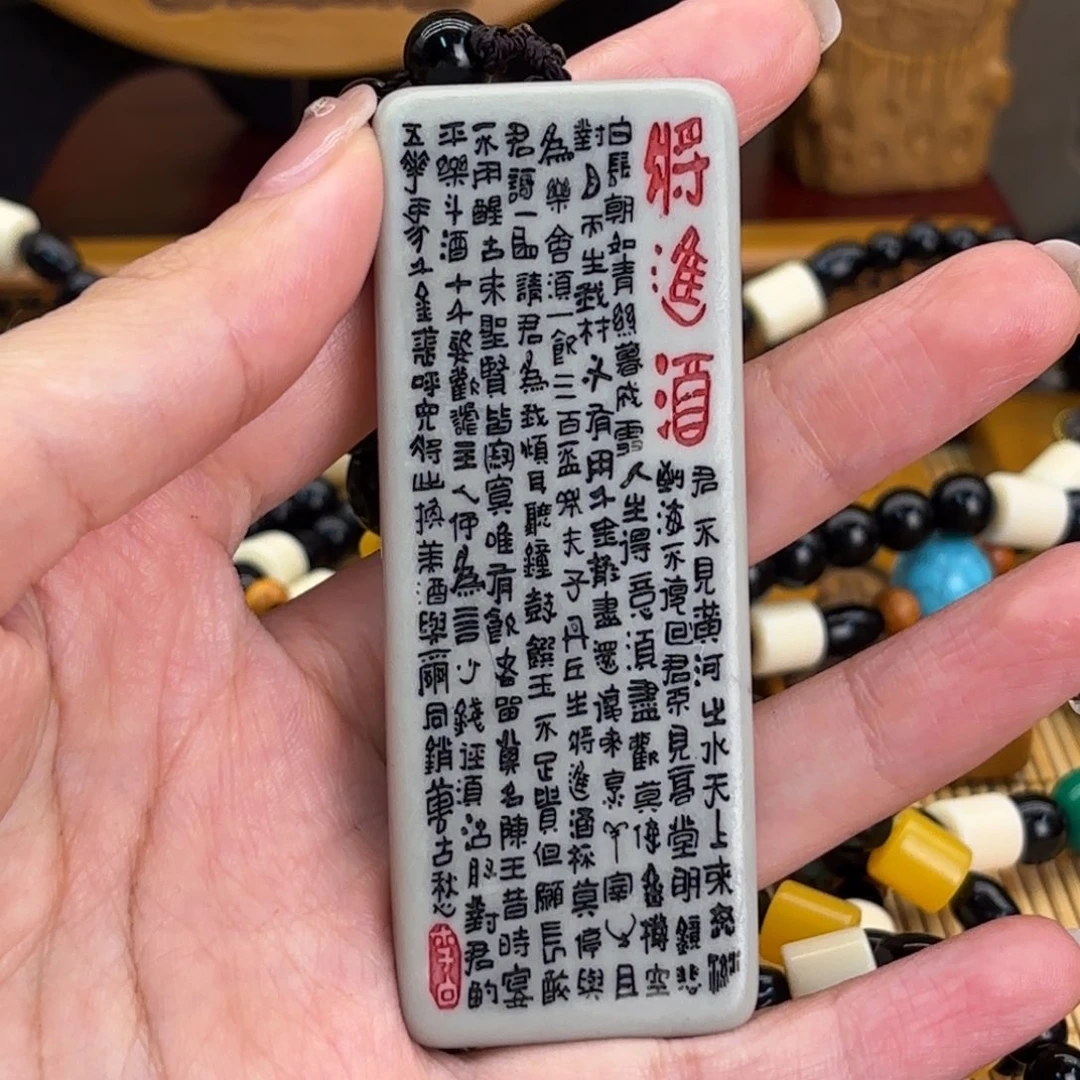 將進酒
君不見黃河之水天上來奔流
到海不復回君不見高堂明鏡悲
白髮朝如青絲暮成雪人生得意須盡歡莫使金樽空
對月天生我材必有用千金散盡還復來烹羊宰牛且
為樂會須一飲三百盃岑夫子丹丘生將進酒杯莫停與
君謌一曲請君為我傾耳聽鐘鼓饌玉不足貴但願長醉
不用醒古來聖賢皆寂寞唯有飲者留其名陳王昔時宴
平樂斗酒十千恣歡謔主人何為言少錢徑須沽取對君酌
五華馬千金裘呼兒將出換美酒與爾同銷萬古愁
李白